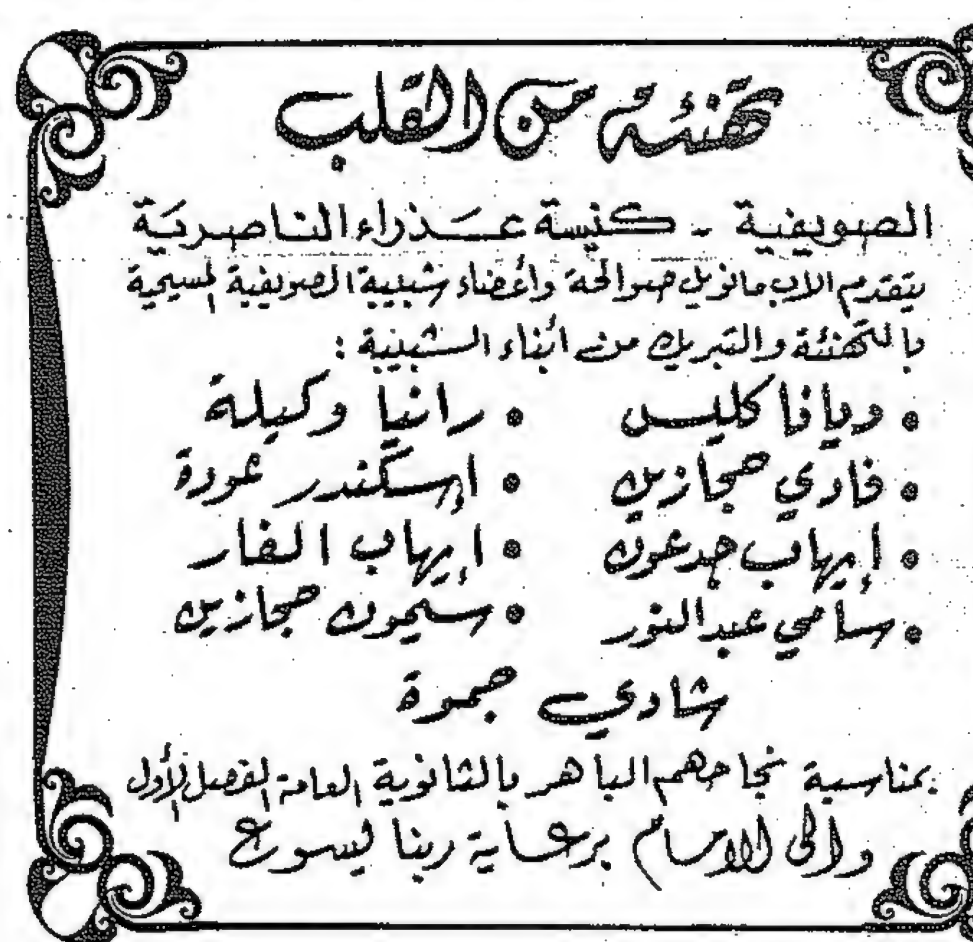 تهنئة من القلب
الصويفية - كنيسة عذراء الناصرية
يتقدم الاب مانويل صوالحة وأعضاء شبيبة الصويفية المسيحية
بالتهنئة والتبريك من أبناء الشبيبة :
• ديانا كليس • رانيا وكيلة
• فادي حجازين • إسكندر عودة
• إيهاب جدعون • إيهاب الفار
• سامي عبدالنور • سيمون حجازين
شادي حمرة
بمناسبة نجاحهم الباهر بالثانوية العامة الفصل الأول
والى الامام برعاية ربنا يسوع